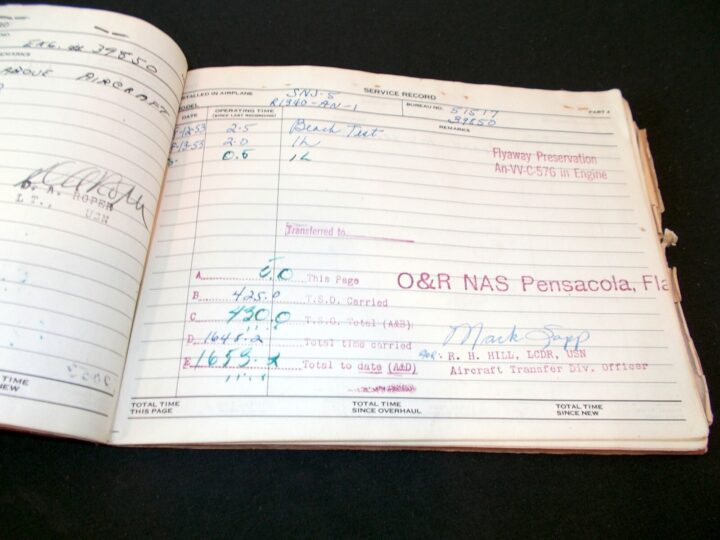 ENG. # 39850
REMARKS
ABOVE AIRCRAFT
D. A. ROPER
LT., USN
TIME
NEW
SERVICE RECORD
INSTALLED IN AIRPLANE SNJ-5
MODEL R1340-AN-1
BUREAU NO. 51517
39850
PART 4
DATE
OPERATING TIME
(SINCE LAST RECORDING)
REMARKS
-12-53 2.5 Bench Test
-13-53 2.0 "
0.5 "
Flyaway Preservation
An-VV-C-576 in Engine
Transferred to
A This Page
O&R NAS Pensacola, Fla
B 425.0 T.S.O. Carried
C 430.0 T.S.O. Total (A&B)
D 1648.2 Total time carried
E 1653.2 Total to date (A&D)
Mark Sapp
FOR: R. H. HILL, LCDR, USN
Aircraft Transfer Div. Officer
TOTAL TIME
THIS PAGE
TOTAL TIME
SINCE OVERHAUL
TOTAL TIME
SINCE NEW